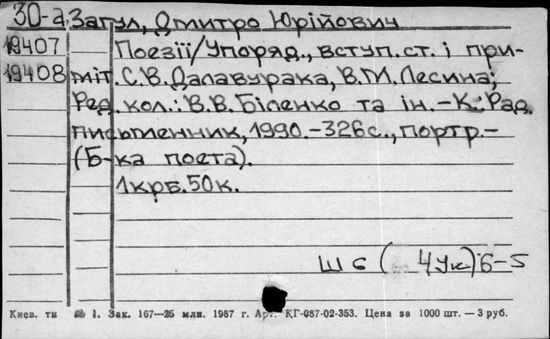 30-а Загул, Дмитро Юрійович
19407 Поезії/Упоряд., вступ.ст. і при-
19408 міт. С.В.Далавурака, В.М.Лесина;
Ред. кол.: В.В.Біленко та ін.-К.: Рад.
письменник, 1990.-326с., портр.-
(Б-ка поета).
1крб.50к.
Ш 6 ( 4Ук)6-5
Киев. тв № 1. Зак. 167—25 млн. 1987 г. Арт. КГ-087-02-353. Цена за 1000 шт. — 3 руб.